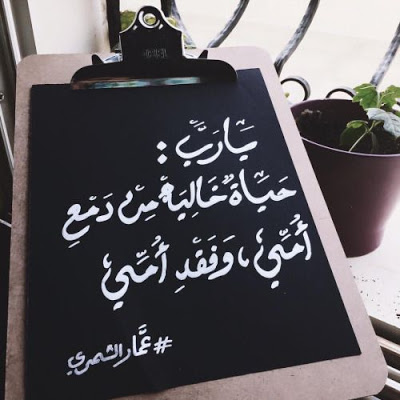 يَا رَبِّ :
حَيَاةً خَالِيَةً مِنْ دَمْعِ
أُمِّي ، وَفَقْدِ أُمِّي
#عمَّار الشمري